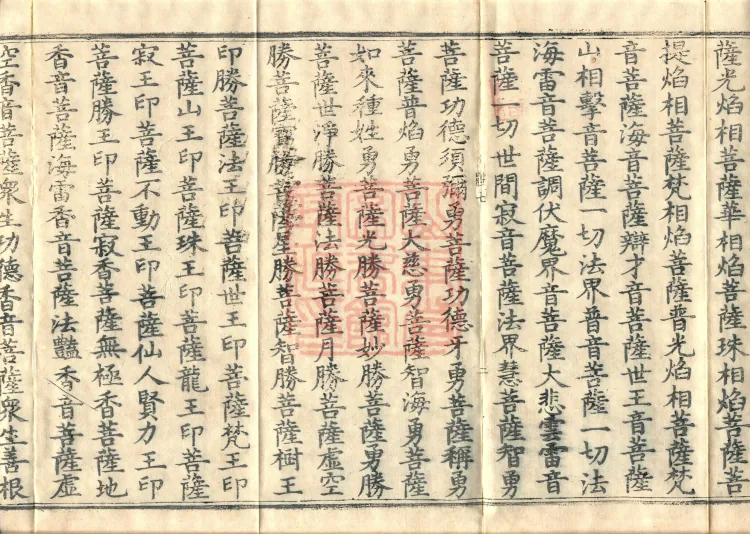 薩光焰相菩薩華相焰菩薩珠相焰菩薩菩
提焰相菩薩梵相焰菩薩普光焰相菩薩梵
音菩薩海音菩薩辯才音菩薩世王音菩薩
山相擊音菩薩一切法界普音菩薩一切法
海雷音菩薩調伏魔界音菩薩大悲雲雷音
菩薩一切世間寂音菩薩法界慧菩薩智勇
七
二
菩薩功德須彌勇菩薩功德牙勇菩薩稱勇
菩薩普焰勇菩薩大慈勇菩薩智海勇菩薩
如來種姓勇菩薩光勝菩薩妙勝菩薩勇勝
菩薩世淨勝菩薩法勝菩薩月勝菩薩虛空
勝菩薩寶勝菩薩星勝菩薩智勝菩薩樹王
印勝菩薩法王印菩薩世王印菩薩梵王印
菩薩山王印菩薩珠王印菩薩龍王印菩薩
寂王印菩薩不動王印菩薩仙人賢力王印
菩薩勝王印菩薩寂香菩薩無極香菩薩地
香音菩薩海雷香音菩薩法豔香音菩薩虛
空香音菩薩衆生功德香音菩薩衆生善根